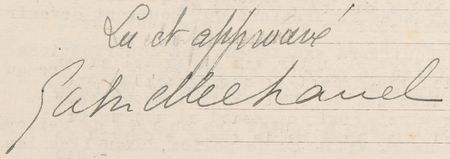 Lu et approuvé
Gabrielle Chanel